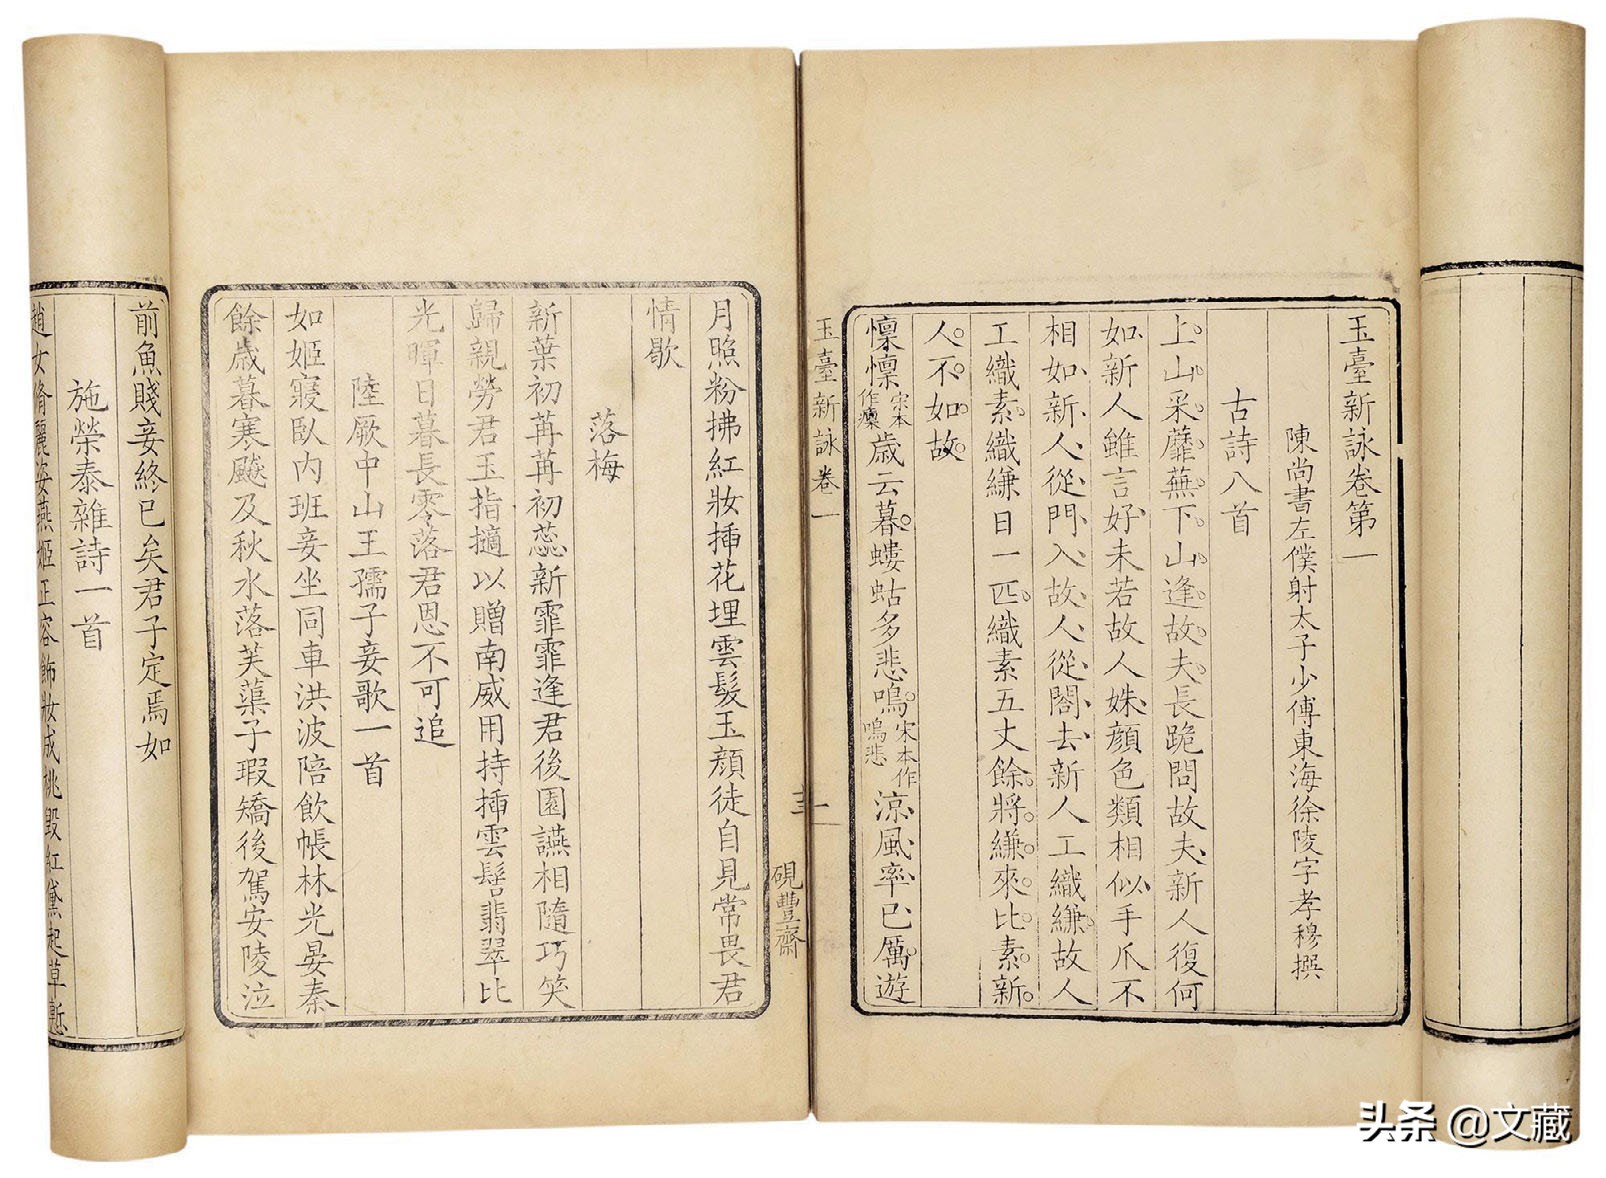 玉臺新詠卷第一
陳尚書左僕射太子少傅東海徐陵字孝穆撰
古詩八首
上山采蘼蕪下山逢故夫長跪問故夫新人復何
如新人雖言好未若故人姝顏色類相似手爪不
相如新人從門入故人從閤去新人工織縑故人
工織素織縑日一匹織素五丈餘將縑來比素新
人不如故
懍懍宋本作凜歲云暮螻蛄多悲鳴宋本作鳴悲涼風率已厲遊
玉臺新詠卷一
一
硯豐齋
月照粉拂紅妝揷花埋雲髮玉顏徒自見常畏君
情歇
落梅
新葉初苒苒初蕊新霏霏逢君後園讌相隨巧笑
歸親勞君玉指摘以贈南威用持揷雲髻翡翠比
光暉日暮長零落君恩不可追
陸厥中山王孺子妾歌一首
如姬寢臥內班妾坐同車洪波陪飲帳林光晏秦
餘歲暮寒飈及秋水落芙蕖子瑕矯後駕安陵泣
前魚賤妾終已矣君子定焉如
施榮泰雜詩一首
趙女脩麗姿燕姬正容飾妝成桃毀紅黛起草慙
头条 @文藏